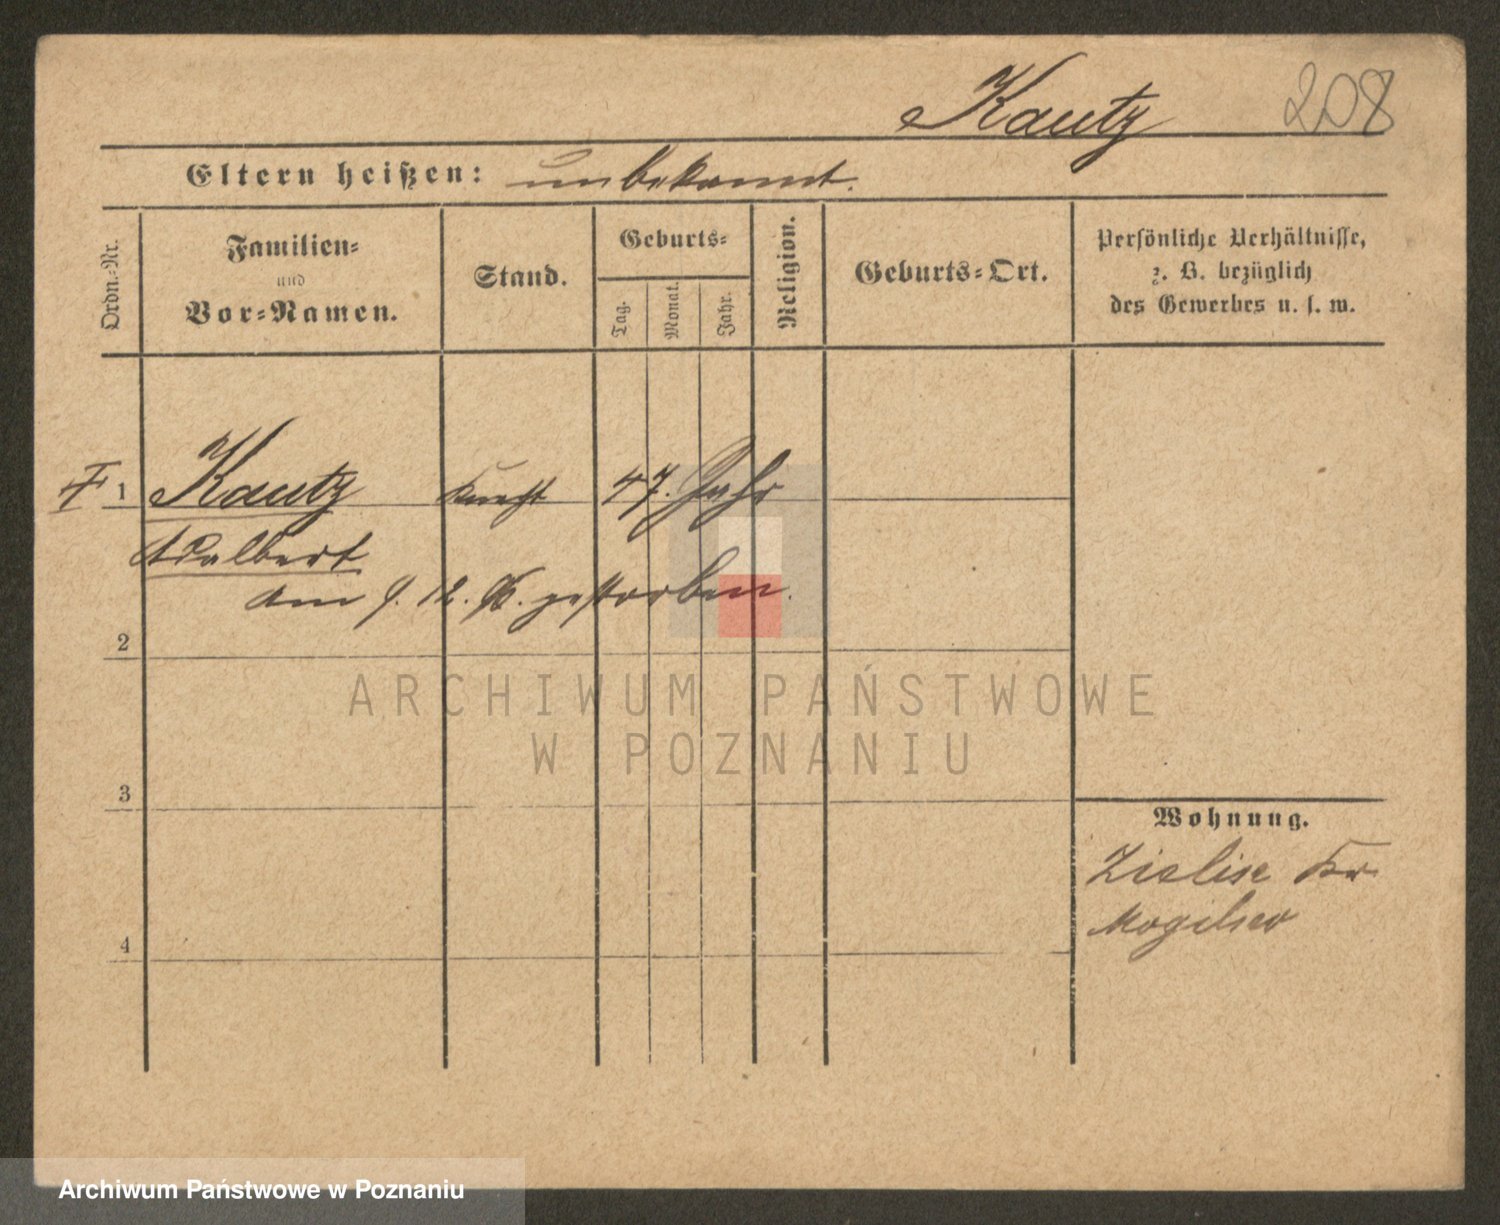 Kautz 208
Eltern heißen: unbekannt.
Ordn.-Nr.
Familien-
und
Vor-Namen.
Stand.
Geburts-
Tag.
Monat.
Jahr.
Religion.
Geburts-Ort.
Persönliche Verhältnisse,
z. B. bezüglich
des Gewerbes u. s. w.
1 Kautz Knecht 47. Jahr
Adalbert
am 9. 12. gestorben.
2
3
4
Wohnung.
Kr
Mogilno
ARCHIWUM PAŃSTWOWE
W POZNANIU
Archiwum Państwowe w Poznaniu